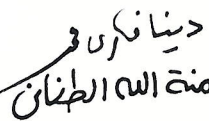 دينا فكرى
منة الله الطنانى